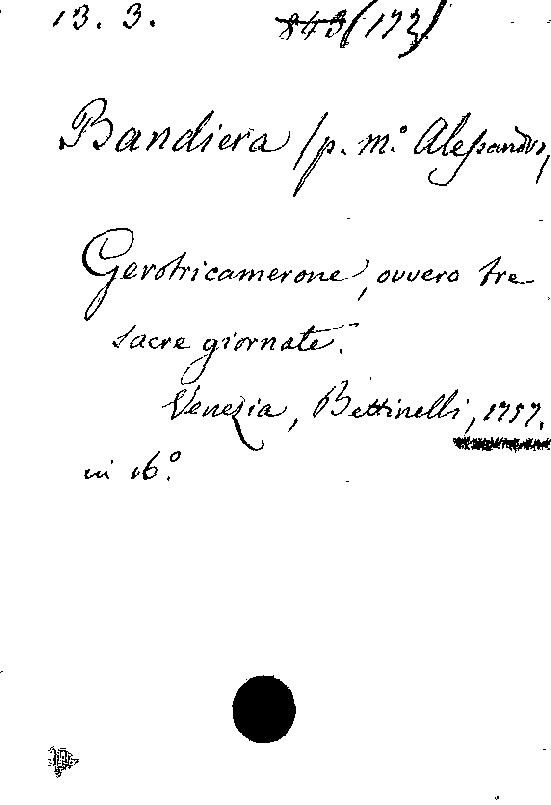 13. 3. 843 (173)
Bandiera / p. m.° Alessandro,
Gerotricamerone, ovvero tre
sacre giornate.
Venezia, Bettinelli, 1757.
in 16.°